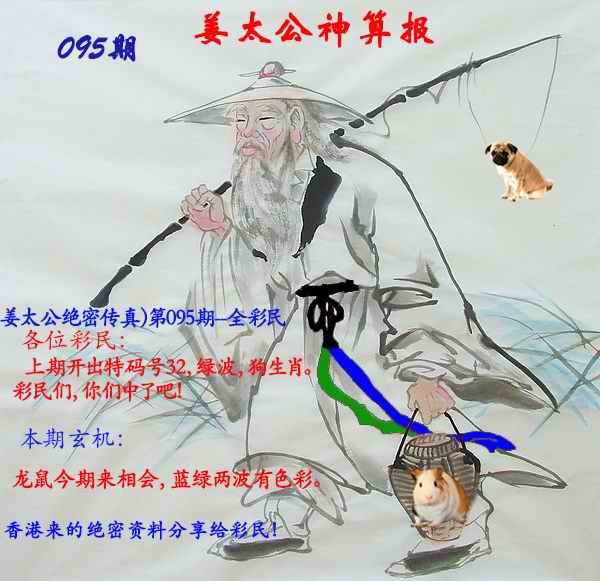 095期
姜太公神算报
姜太公绝密传真)第095期—全彩民
各位彩民:
上期开出特码号32,绿波,狗生肖。
彩民们,你们中了吧!
本期玄机:
龙鼠今期来相会,蓝绿两波有色彩。
香港来的绝密资料分享给彩民!